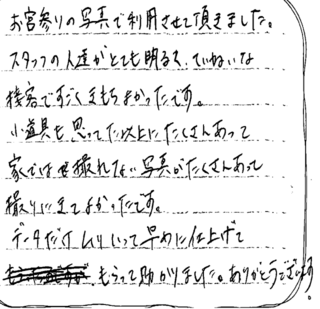 お宮参りの写真で利用させて頂きました。
スタッフの人達がとても明るく、ていねいな
接客ですごくきもちよかったです。
小道具も思ってた以上にたくさんあって
家では撮れない写真がたくさんあって
撮りにきてよかったです。
データだけムリいって早めに仕上げて
もらって助かりました。ありがとうございます。